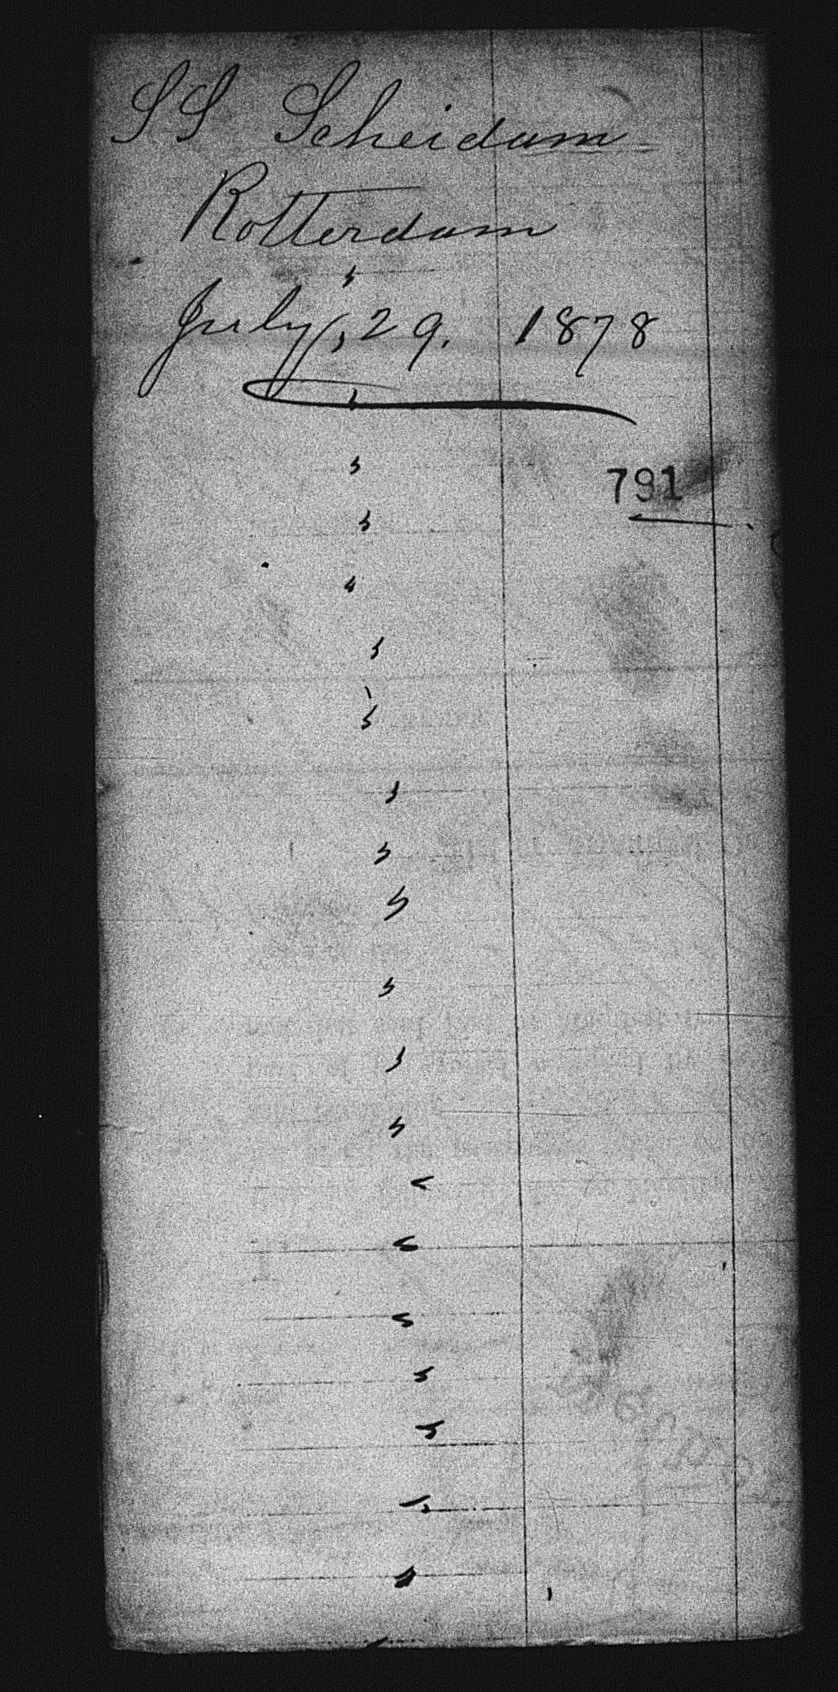 SS Scheidam
Rotterdam
July, 29. 1878
791